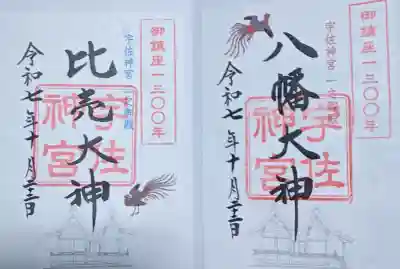 御鎮座一三〇〇年
八幡大神
宇佐神宮 一之御殿
宇佐神宮
令和七年十月二十三日
御鎮座一三〇〇年
宇佐神宮 二之御殿
比売大神
宇佐神宮
令和七年十月二十三日